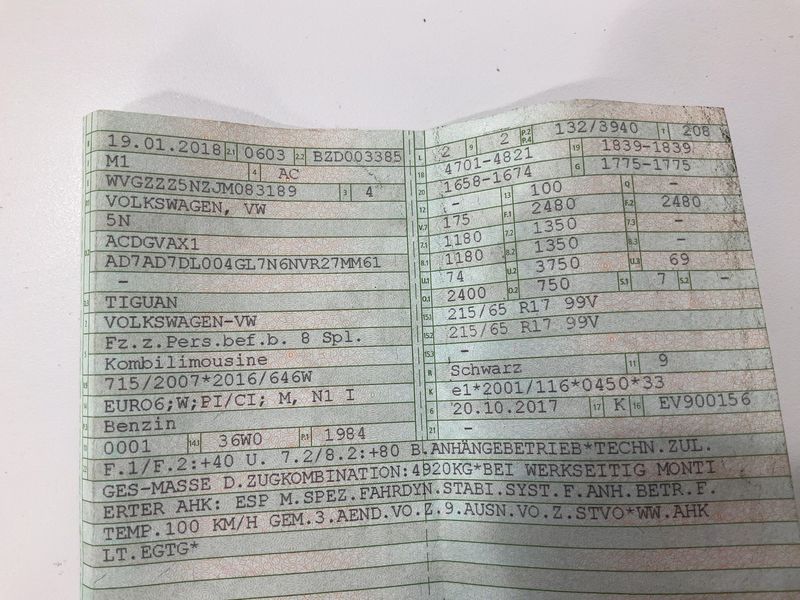 B 19.01.2018 2.1 0603 2.2 BZD003385
M1 4 AC
WVGZZZ5NZJM083189 3 4
VOLKSWAGEN, VW
5N
ACDGVAX1
AD7AD7DL004GL7N6NVR27MM61
–
TIGUAN
VOLKSWAGEN-VW
Fz.z.Pers.bef.b. 8 Spl.
Kombilimousine
715/2007*2016/646W
EURO6;W;PI/CI; M, N1 I
Benzin
0001 14.1 36W0 P.1 1984
L 2 9 2 P.2 P.4 132/3940 T 208
18 4701-4821 19 1839-1839
20 1658-1674 G 1775-1775
12 – 13 100 Q –
V.7 175 F.1 2480 F.2 2480
7.1 1180 7.2 1350 7.3 –
8.1 1180 8.2 1350 8.3 –
U.1 74 U.2 3750 U.3 69
O.1 2400 O.2 750 S.1 7 S.2 –
15.1 215/65 R17 99V
15.2 215/65 R17 99V
15.3 –
R Schwarz 11 9
K e1*2001/116*0450*33
6 20.10.2017 17 K 16 EV900156
21 –
F.1/F.2:+40 U. 7.2/8.2:+80 B.ANHÄNGEBETRIEB*TECHN.ZUL.
GES-MASSE D.ZUGKOMBINATION:4920KG*BEI WERKSEITIG MONTI
ERTER AHK: ESP M.SPEZ.FAHRDYN.STABI.SYST.F.ANH.BETR.F.
TEMP.100 KM/H GEM.3.AEND.VO.Z.9.AUSN.VO.Z.STVO*WW.AHK
LT.EGTG*